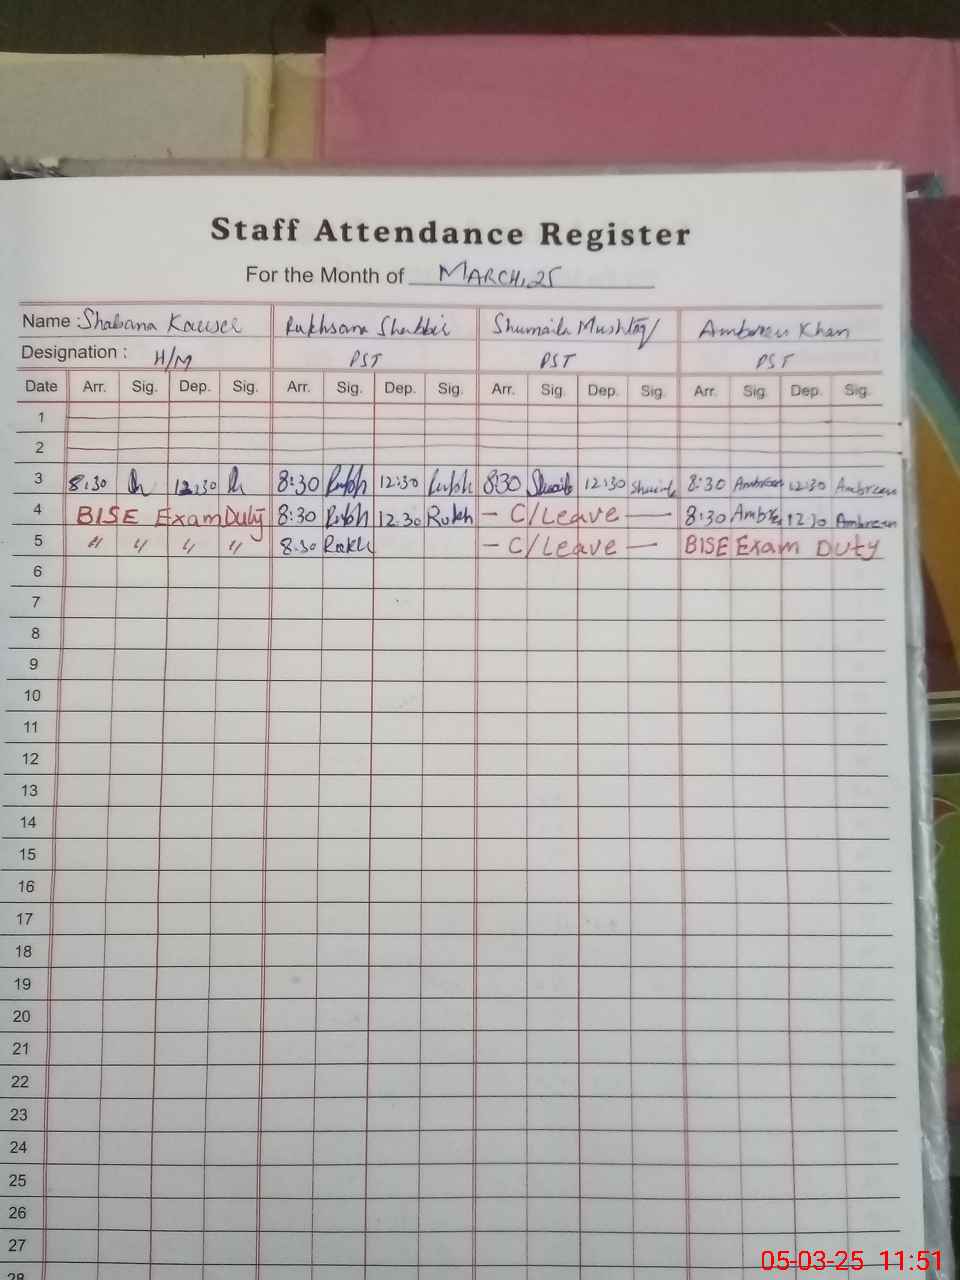 Staff Attendance Register
For the Month of MARCH, 25
Name : Shabana Kausel Rukhsana Shabbir Shumaila Mushtaq Ambreen Khan
Designation : H/M PST PST PST
Date Arr. Sig. Dep. Sig. Arr. Sig. Dep. Sig. Arr. Sig. Dep. Sig. Arr. Sig. Dep. Sig.
1
2
3 8:30 12:30 8:30 Rukh 12:30 Rukh 8:30 12:30 8:30 Ambreen 12:30 Ambreen
4 BISE Exam Duty 8:30 Rukh 12.30 Rukh - C/Leave - 8:30 12:30 Ambreen
5 " " " " 8.30 Rukh - C/Leave - BISE Exam Duty
6
7
8
9
10
11
12
13
14
15
16
17
18
19
20
21
22
23
24
25
26
27
28
05-03-25 11:51